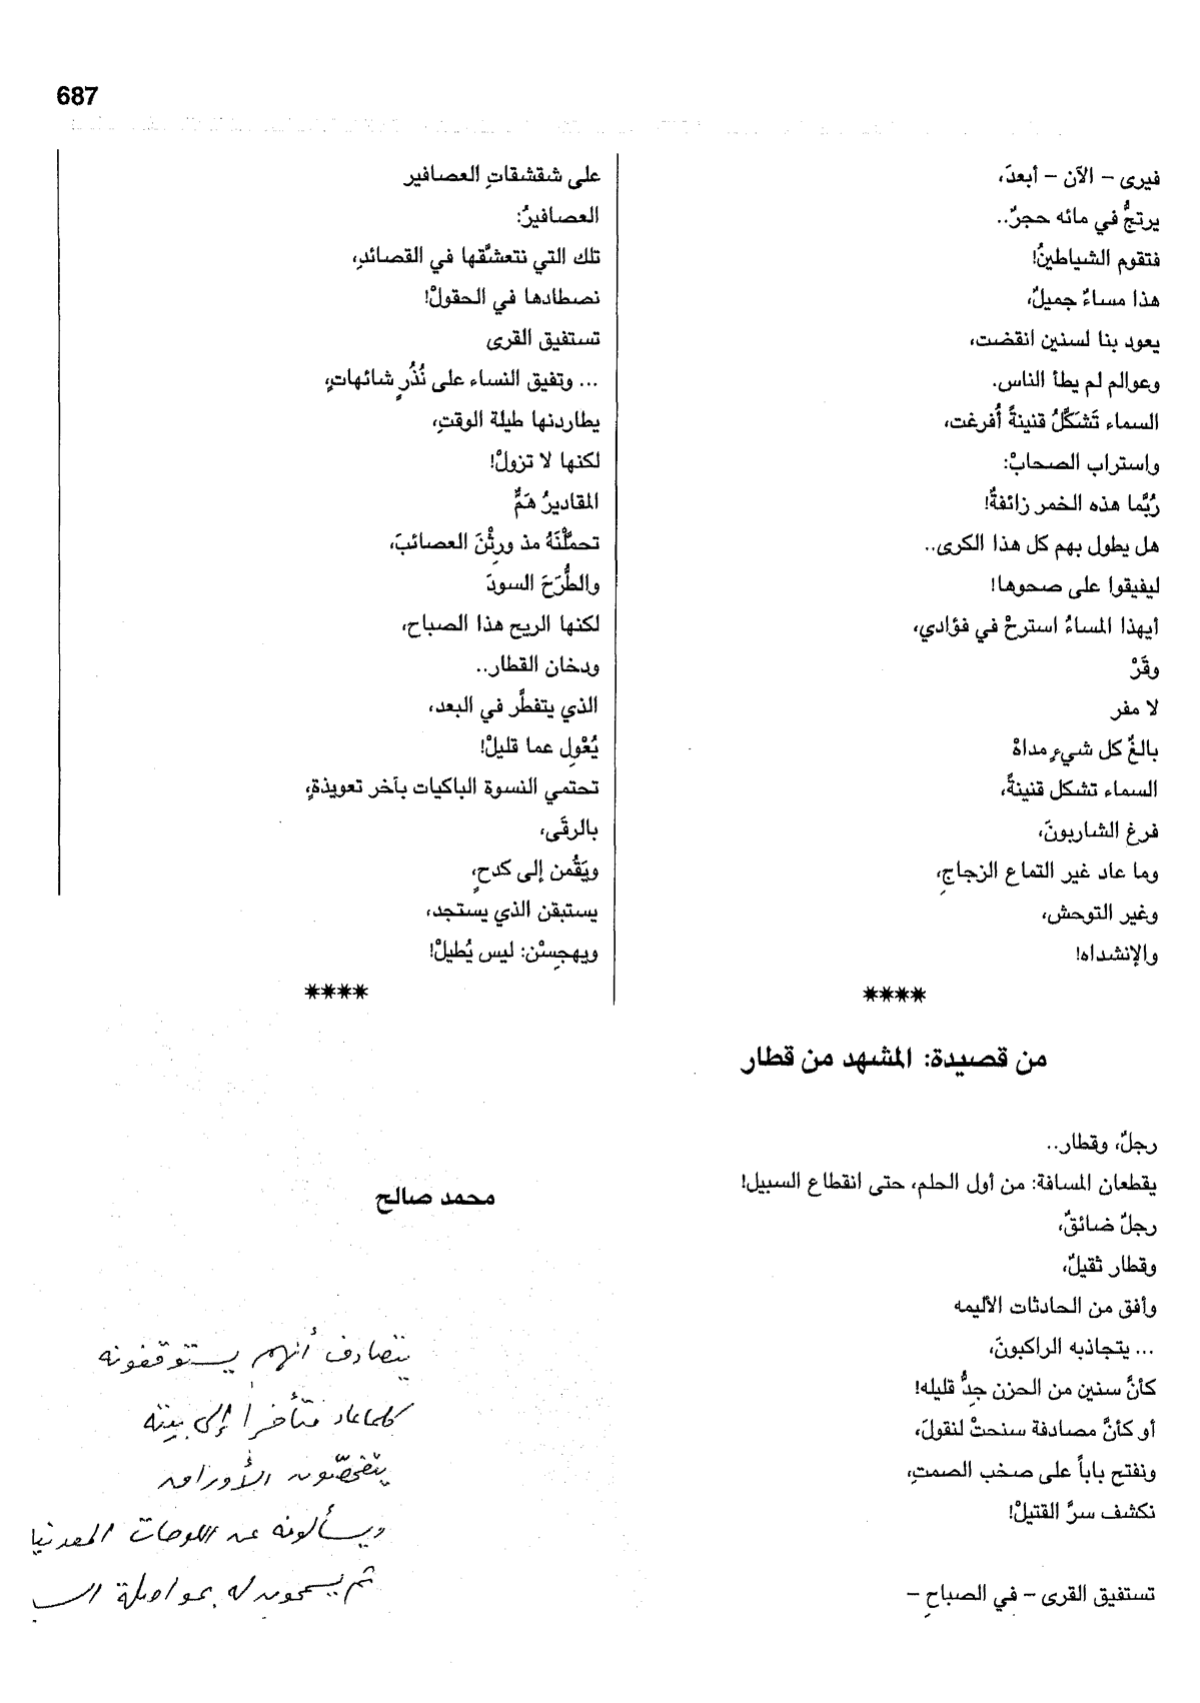 687
فيرى – الآن – أبعدَ،
يرتجُّ في مائه حجرٌ..
فتقوم الشياطينُ!
هذا مساءٌ جميلٌ،
يعود بنا لسنين انقضت،
وعوالم لم يطأ الناس.
السماء تَشَكَّلُ قنينةً أُفرغت،
واستراب الصحابْ:
رُبَّما هذه الخمر زائفةٌ!
هل يطول بهم كل هذا الكرى..
ليفيقوا على صحوها!
أيهذا المساءُ استرحْ في فؤادي،
وقَرْ
لا مفر
بالغٌ كل شيءٍ مداهْ
السماء تشكل قنينةً،
فرغ الشاربونَ،
وما عاد غير التماع الزجاجِ،
وغير التوحش،
والإنشداه!
****
من قصيدة: المشهد من قطار
رجلٌ، وقطار..
يقطعان المسافة: من أول الحلم، حتى انقطاع السبيل!
رجلٌ ضائقٌ،
وقطار ثقيلٌ،
وأفق من الحادثات الأليمه
... يتجاذبه الراكبونَ،
كأنَّ سنين من الحزن جِدُّ قليله!
أو كأنَّ مصادفة سنحتْ لنقولَ،
ونفتح باباً على صخب الصمتِ،
نكشف سرَّ القتيلْ!
تستفيق القرى – في الصباحِ –
على شقشقاتِ العصافير
العصافيرُ:
تلك التي نتعشَّقها في القصائدِ،
نصطادها في الحقولْ!
تستفيق القرى
... وتفيق النساء على نُذُرٍ شائهاتٍ،
يطاردنها طيلة الوقتِ،
لكنها لا تزولْ!
المقاديرُ هَمٌّ
تحملْنَهُ مذ ورِثْنَ العصائبَ،
والطُّرَحَ السودَ
لكنها الريح هذا الصباح،
ودخان القطار..
الذي يتفطَّر في البعد،
يُعْوِل عما قليلْ!
تحتمي النسوة الباكيات بآخر تعويذةٍ،
بالرقَى،
ويَقُمن إلى كدحٍ،
يستبقن الذي يستجد،
ويهجِسْن: ليس يُطيلْ!
****
محمد صالح
يتصادف أنهم يستوقفونه
كلما عاد متأخراً إلى بيته
يتفحصّون الأوراق
ويسألونه عن اللوحات المعدنيا
ثم يسمحون له بمواصلة الس